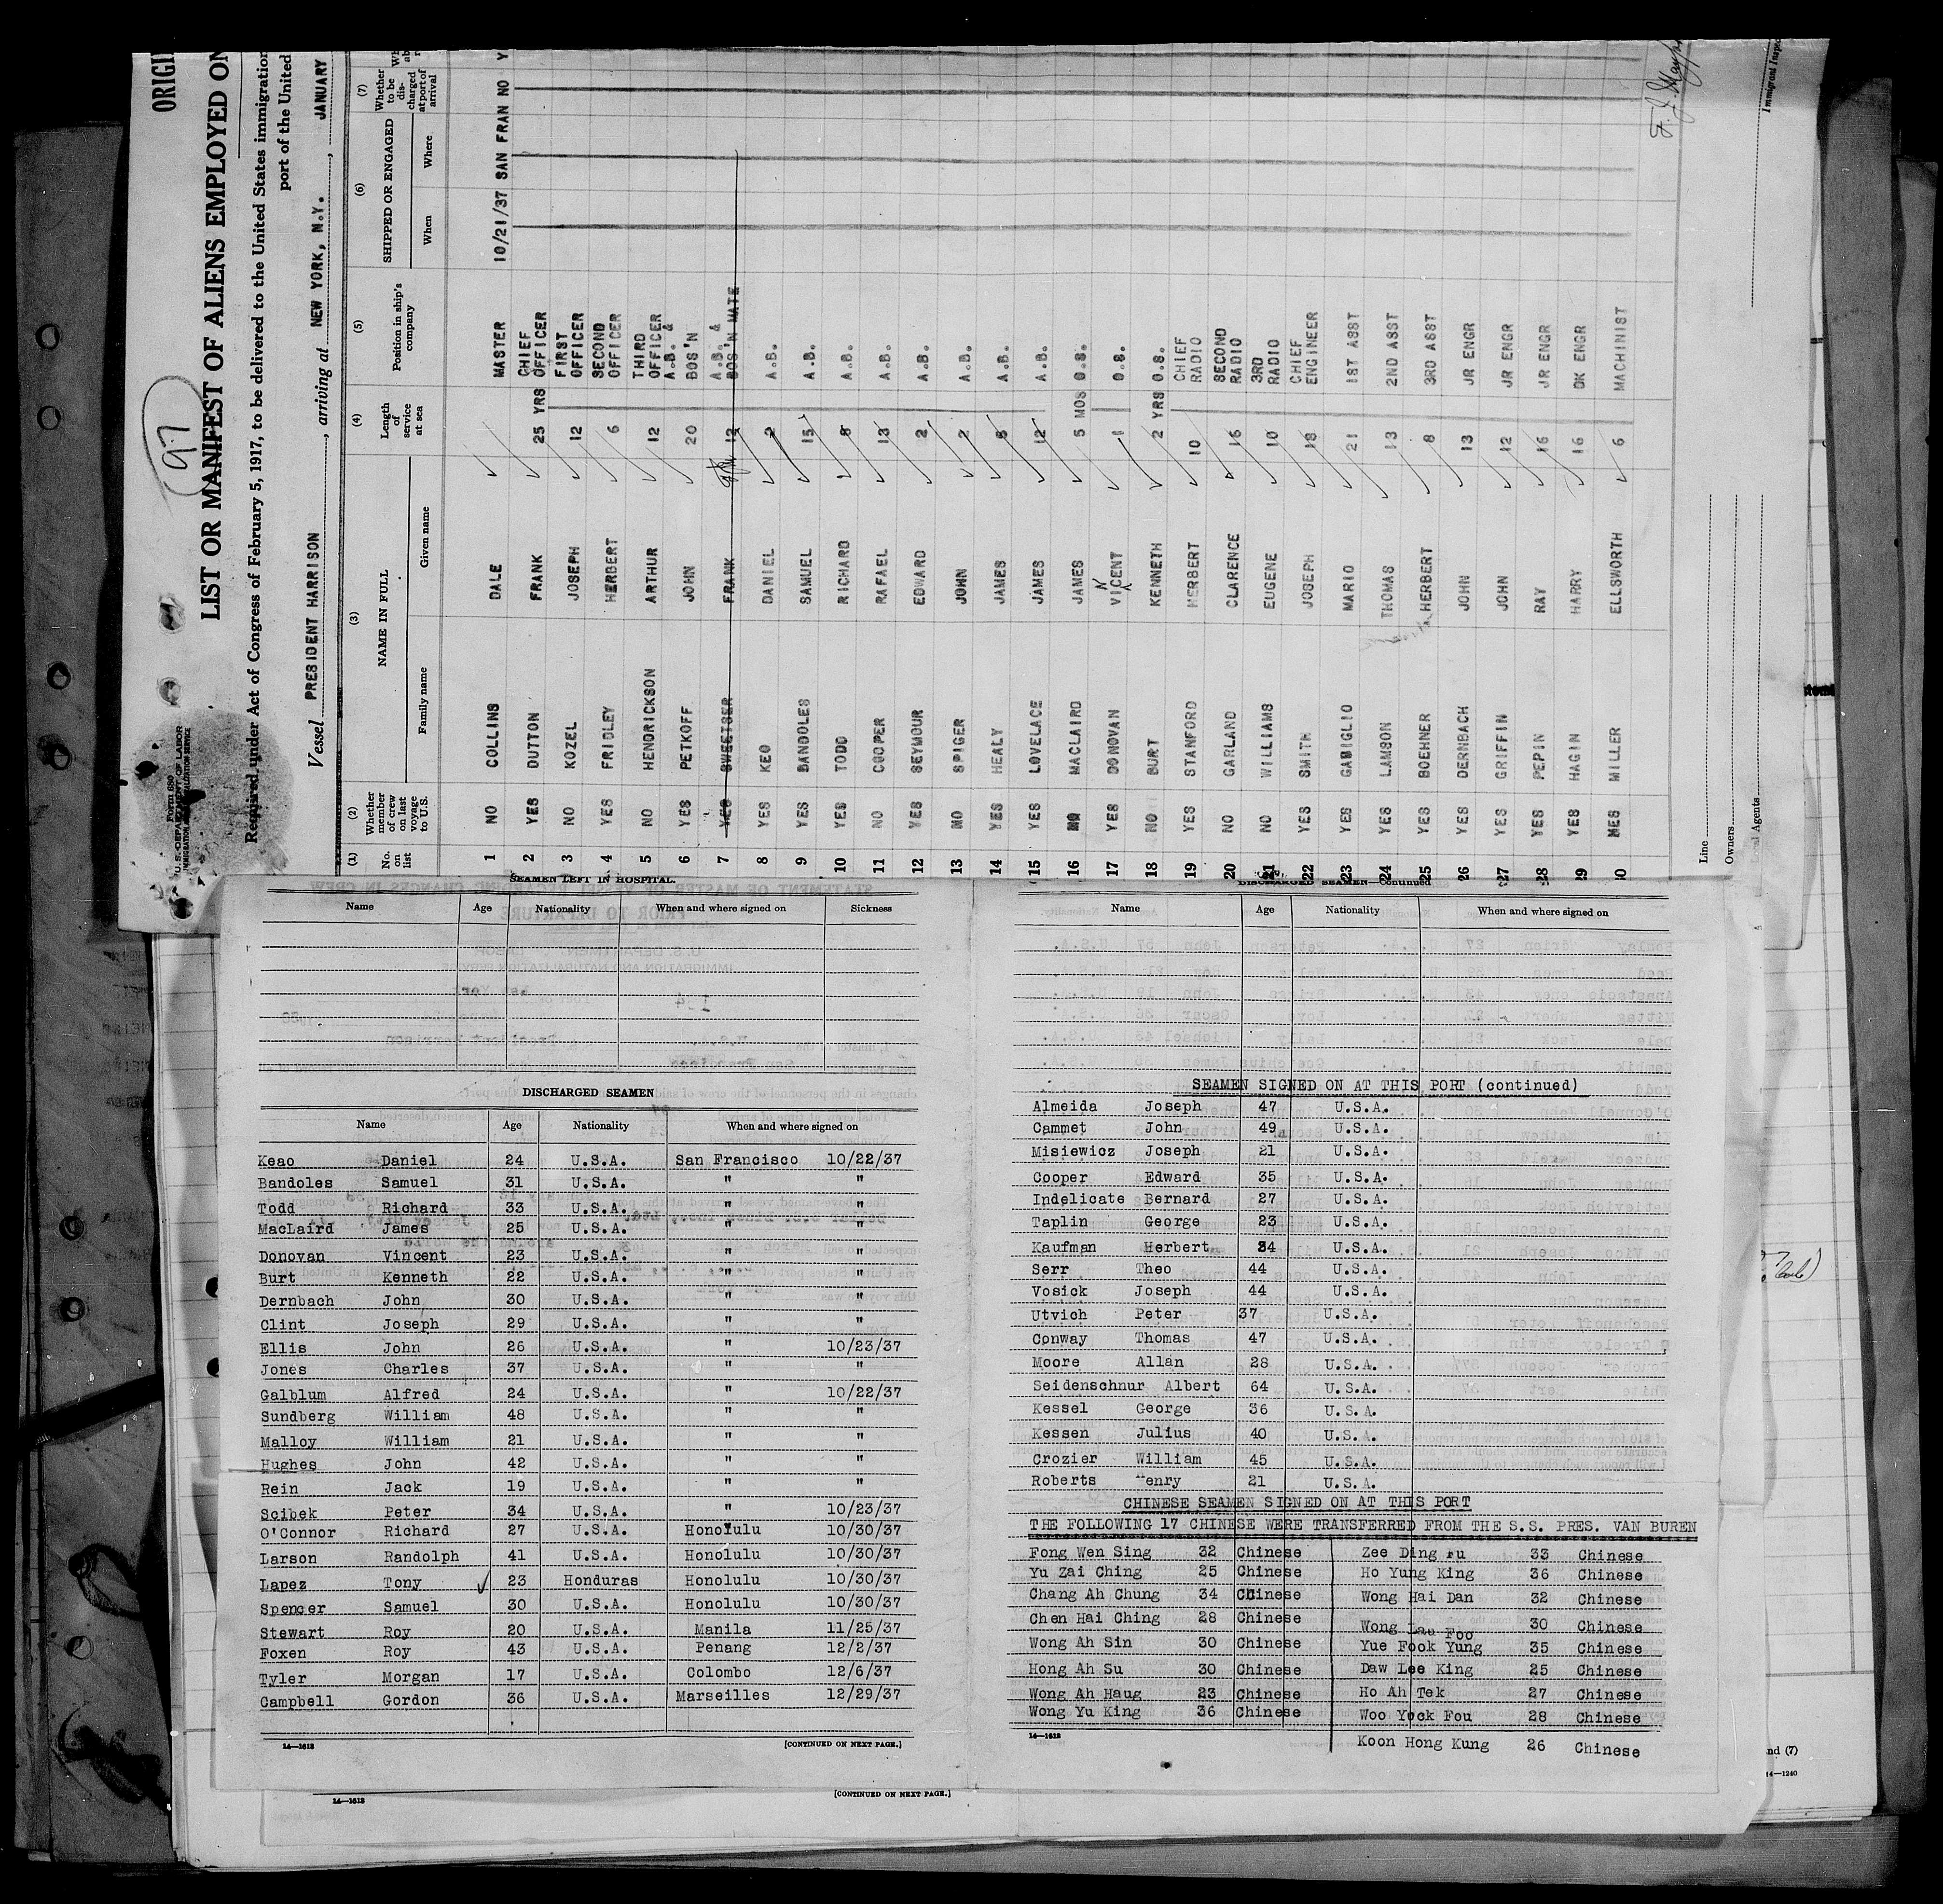 97
ORIGI
LIST OR MANIFEST OF ALIENS EMPLOYED ON
Required under Act of Congress of February 5, 1917, to be delivered to the United States immigration
port of the United
Form 680
U. S. DEPARTMENT OF LABOR
IMMIGRATION AND NATURALIZATION SERVICE
Vessel PRESIDENT HARRISON, arriving at NEW YORK, N.Y., JANUARY
(1) (2) (3) (4) (5) (6) (7)
No. on list Whether member of crew on last voyage to U.S. NAME IN FULL Family name Given name Length of service at sea Position in ship's company SHIPPED OR ENGAGED When Where Whether to be discharged at port of arrival
1 NO COLLINS DALE MASTER 10/21/37 SAN FRAN NO Y
2 YES DUTTON FRANK 25 YRS CHIEF OFFICER
3 NO KOZEL JOSEPH 12 FIRST OFFICER
4 YES FRIDLEY HERBERT 6 SECOND OFFICER
5 NO HENDRICKSON ARTHUR 12 THIRD OFFICER
6 YES PETKOFF JOHN 20 A.B. & BOS'N
7 YES SWEETSER FRANK 12 A.B. & BOS'N MATE
8 YES KEO DANIEL 2 A.B.
9 YES BANDOLES SAMUEL 15 A.B.
10 YES TODD RICHARD 8 A.B.
11 NO COOPER RAFAEL 13 A.B.
12 YES SEYMOUR EDWARD 2 A.B.
13 NO SPIGER JOHN 2 A.B.
14 YES HEALY JAMES 6 A.B.
15 YES LOVELACE JAMES 12 A.B.
16 NO MACLAIRD JAMES 5 MOS O.S.
17 YES DONOVAN VINCENT 1 O.S.
18 NO BURT KENNETH 2 YRS O.S.
19 YES STANFORD HERBERT 10 CHIEF RADIO
20 NO GARLAND CLARENCE 16 SECOND RADIO
21 NO WILLIAMS EUGENE 10 3RD RADIO
22 YES SMITH JOSEPH 18 CHIEF ENGINEER
23 YES GABIGLIO MARIO 21 1ST ASST
24 YES LAMSON THOMAS 13 2ND ASST
25 YES BOEHNER HERBERT 8 3RD ASST
26 YES DERNBACH JOHN 13 JR ENGR
27 YES GRIFFIN JOHN 12 JR ENGR
28 YES PEPIN RAY 16 JR ENGR
29 YES HAGIN HARRY 16 DK ENGR
30 MILLER ELLSWORTH 6 MACHINIST
Line
Owners
Local Agents
Immigrant Inspec
SEAMEN LEFT IN HOSPITAL.
Name Age Nationality When and where signed on Sickness
DISCHARGED SEAMEN
Name Age Nationality When and where signed on
Keao Daniel 24 U.S.A. San Francisco 10/22/37
Bandoles Samuel 31 U.S.A. " "
Todd Richard 33 U.S.A. " "
MacLaird James 25 U.S.A. " "
Donovan Vincent 23 U.S.A. " "
Burt Kenneth 22 U.S.A. " "
Dernbach John 30 U.S.A. " "
Clint Joseph 29 U.S.A. " "
Ellis John 26 U.S.A. " 10/23/37
Jones Charles 37 U.S.A. " "
Galblum Alfred 24 U.S.A. " 10/22/37
Sundberg William 48 U.S.A. " "
Malloy William 21 U.S.A. " "
Hughes John 42 U.S.A. " "
Rein Jack 19 U.S.A. " "
Scibek Peter 34 U.S.A. " 10/23/37
O'Connor Richard 27 U.S.A. Honolulu 10/30/37
Larson Randolph 41 U.S.A. Honolulu 10/30/37
Lapez Tony 23 Honduras Honolulu 10/30/37
Spencer Samuel 30 U.S.A. Honolulu 10/30/37
Stewart Roy 20 U.S.A. Manila 11/25/37
Foxen Roy 43 U.S.A. Penang 12/2/37
Tyler Morgan 17 U.S.A. Colombo 12/6/37
Campbell Gordon 36 U.S.A. Marseilles 12/29/37
14—1613 [CONTINUED ON NEXT PAGE.]
14—1613 [CONTINUED ON NEXT PAGE.]
DISCHARGED SEAMEN—Continued
Name Age Nationality When and where signed on
SEAMEN SIGNED ON AT THIS PORT (continued)
Almeida Joseph 47 U.S.A.
Cammet John 49 U.S.A.
Misiewicz Joseph 21 U.S.A.
Cooper Edward 35 U.S.A.
Indelicate Bernard 27 U.S.A.
Taplin George 23 U.S.A.
Kaufman Herbert 34 U.S.A.
Serr Theo 44 U.S.A.
Vosick Joseph 44 U.S.A.
Utvich Peter 37 U.S.A.
Conway Thomas 47 U.S.A.
Moore Allan 28 U.S.A.
Seidenschnur Albert 64 U.S.A.
Kessel George 36 U.S.A.
Kessen Julius 40 U.S.A.
Crozier William 45 U.S.A.
Roberts Henry 21 U.S.A.
CHINESE SEAMEN SIGNED ON AT THIS PORT
THE FOLLOWING 17 CHINESE WERE TRANSFERRED FROM THE S.S. PRES. VAN BUREN
Fong Wen Sing 32 Chinese Zee Ding Fu 33 Chinese
Yu Zai Ching 25 Chinese Ho Yung King 36 Chinese
Chang Ah Chung 34 Chinese Wong Hai Dan 32 Chinese
Chen Hai Ching 28 Chinese Wong Lau Foo 30 Chinese
Wong Ah Sin 30 Chinese Yue Fook Yung 35 Chinese
Hong Ah Su 30 Chinese Daw Lee King 25 Chinese
Wong Ah Haug 23 Chinese Ho Ah Tek 27 Chinese
Wong Yu King 36 Chinese Woo Yock Fou 28 Chinese
Koon Hong Kung 26 Chinese
14—1613
nd (7)
14—1240